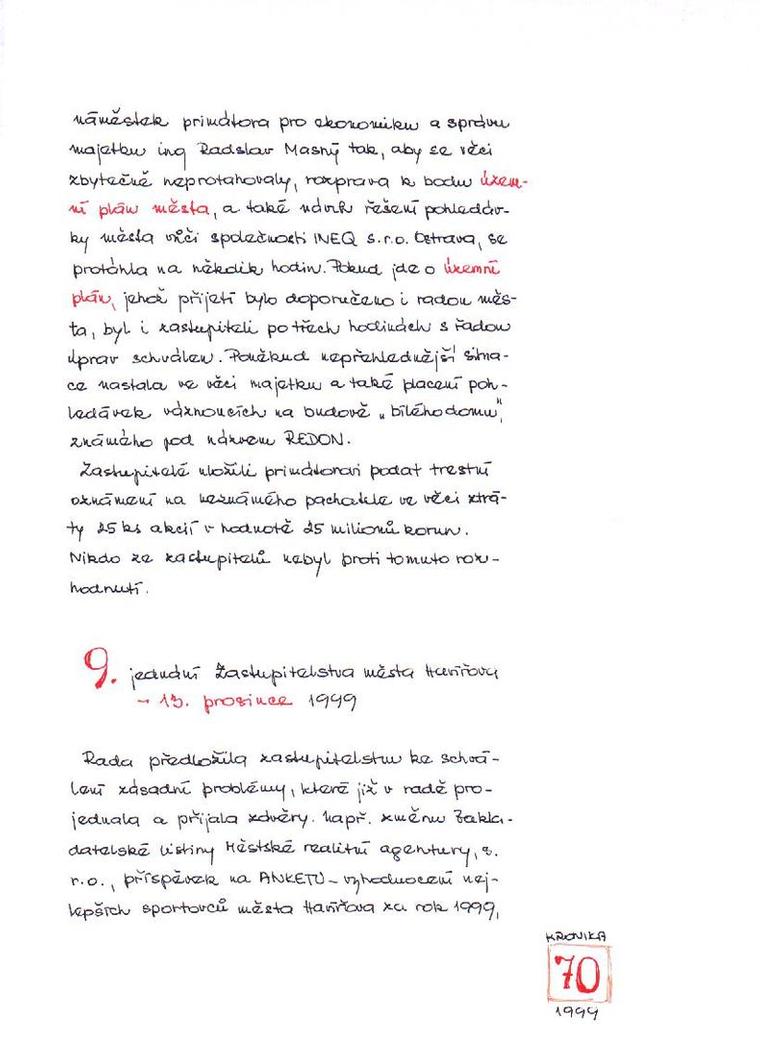 náměstek primátora pro ekonomiku a správu
majetku ing Radslav Masný tak, aby se věci
zbytečně neprotahovaly, rozprava k bodu územ-
ní plán města, a také návrh řešení pohledáv-
ky města vůči společnosti INEQ s.r.o. Ostrava, se
protáhla na několik hodin. Pokud jde o územní
plán, jehož přijetí bylo doporučeno i radou měs-
ta, byl i zastupiteli po třech hodinách s řadou
úprav schválen. Poněkud nepřehlednější situa-
ce nastala ve věci majetku a také placení poh-
ledávek váznoucích na budově „bílého domu",
známého pod názvem REDON.
Zastupitelé uložili primátorovi podat trestní
oznámení na neznámého pachatele ve věci ztrá-
ty 25 ks akcií v hodnotě 25 milionů korun.
Nikdo ze zastupitelů nebyl proti tomuto roz-
hodnutí.
9. jednání Zastupitelstva města Havířova
- 13. prosince 1999
Rada předložila zastupitelstvu ke schvá-
lení zásadní problémy, které již v radě pro-
jednala a přijala závěry. např. změnu Zakla-
datelské listiny Městské realitní agentury, s.
r.o., příspěvek na ANKETU - vyhodnocení nej-
lepších sportovců města Havířova za rok 1999,
KRONIKA
70
1999